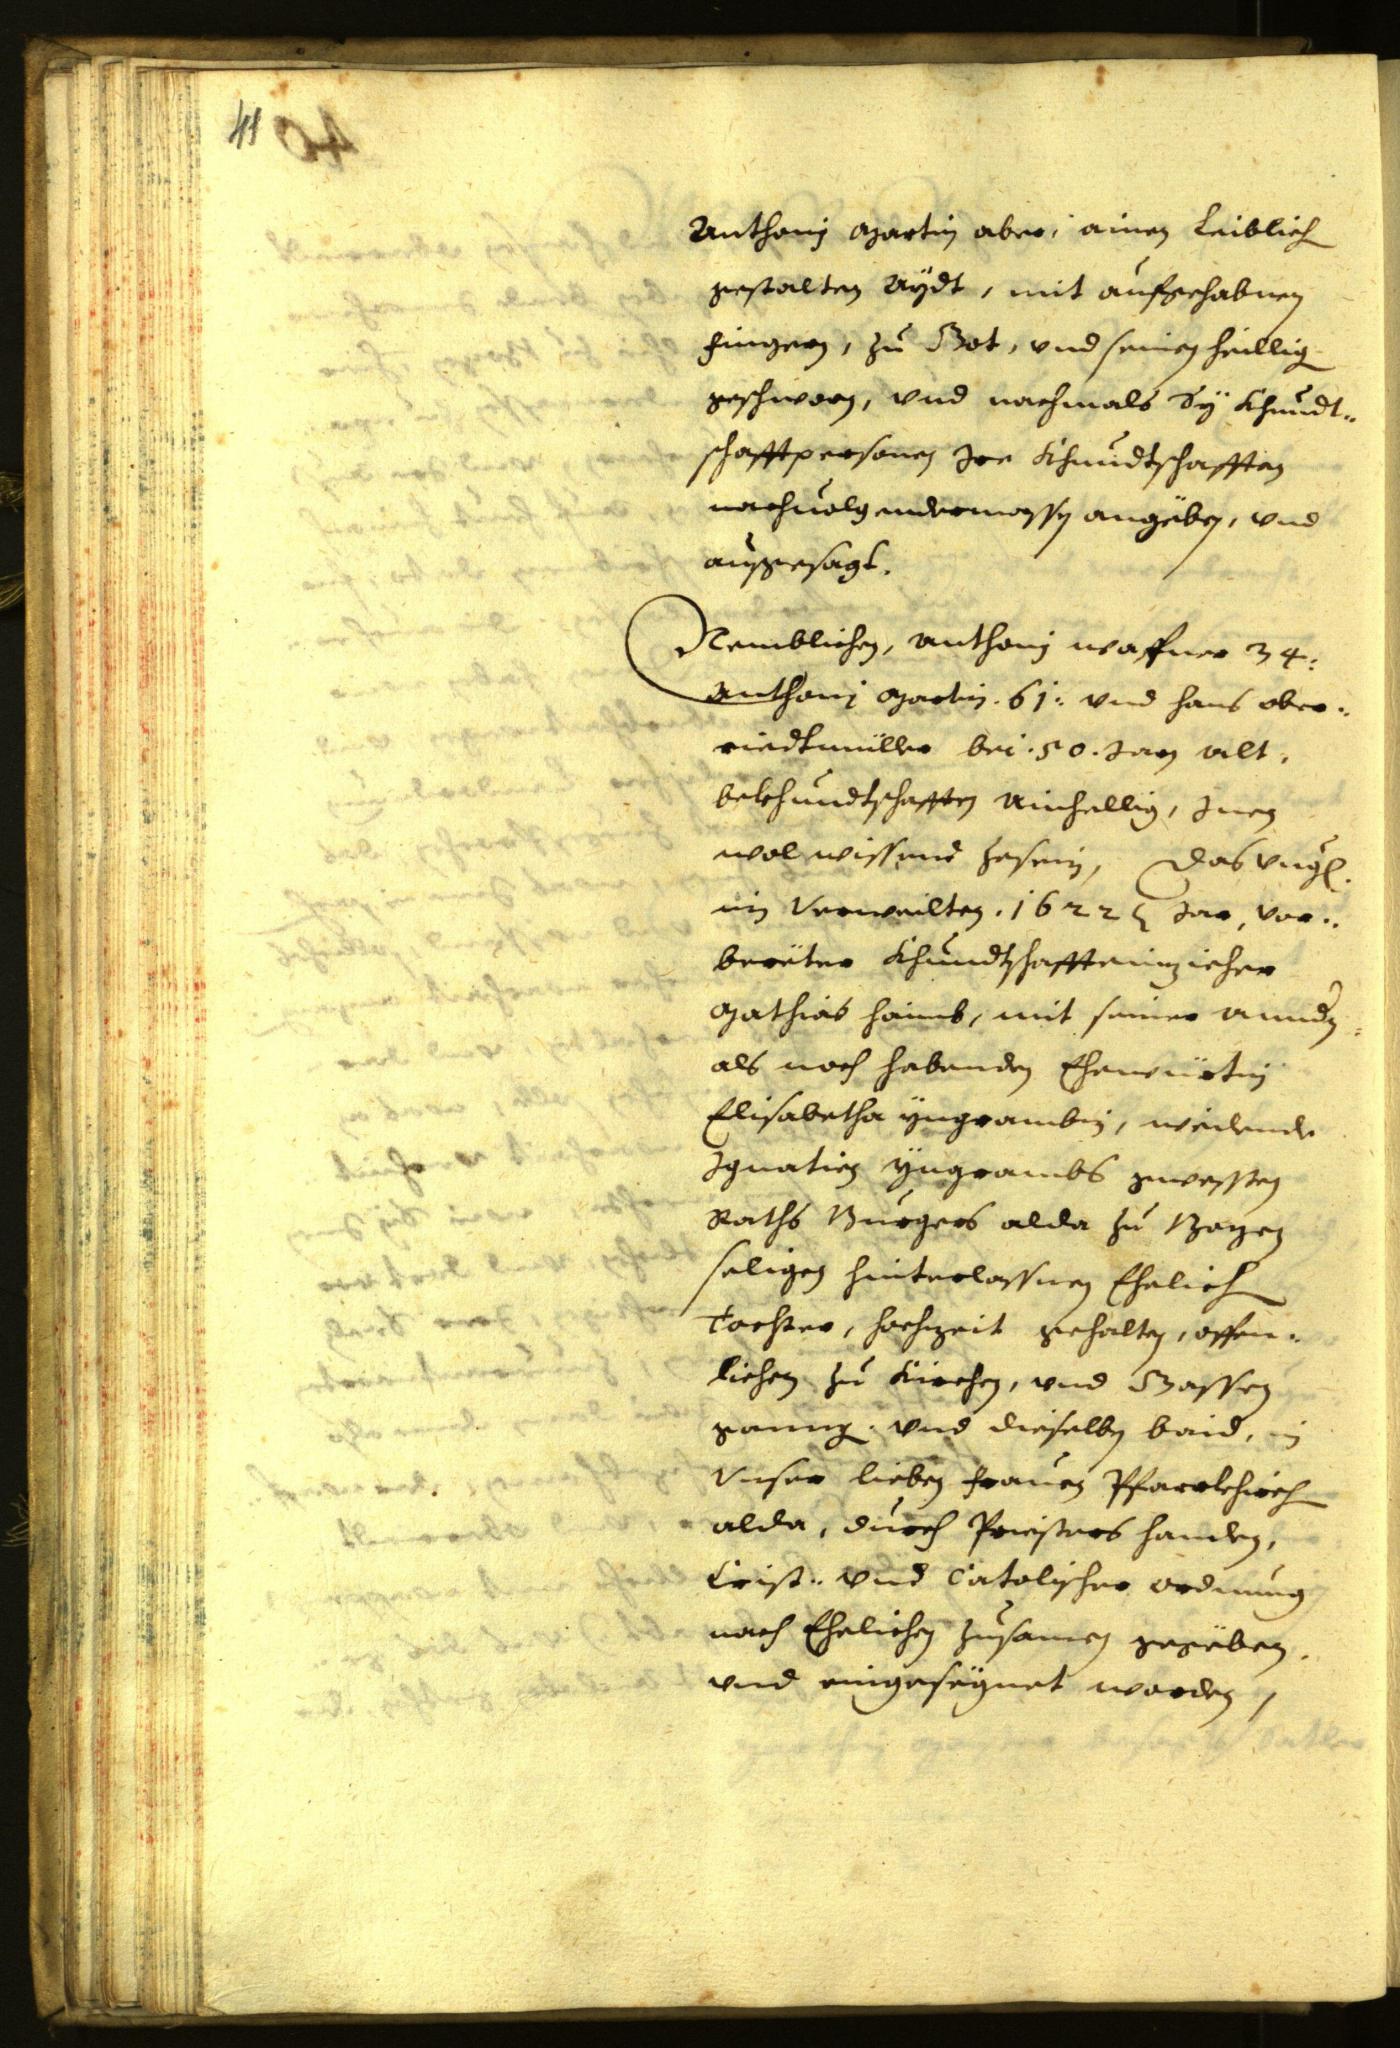 41
Anthonj Martin aber, ainen Leiblich
gestalten Aÿdt, mit aufgehabnen
fingern, zu Got, vnd seinen heillig
geschworn, vnd nachmals Sÿ Khundt-
schafftpersonen Jre Khundtschafften
nachuolgendermassen angëben, vnd
ausgesagt.
Nemblichen, Anthonj Waffner 34:
Anthonj Martin. 61: vnd Hans Ober-
riedtmüller bei. 50. Jarn alt,
bekhundtschafften Ainhellig, Jnen
wol wissend zesein, das
im Verweilten. 1622 Jar, vor-
berüter Khundtschaffteinzieher
Mathias Haimb, mit seiner
als noch habenden Ehewürtin
Elisabetha Yngrambin, weilende
Jgnatien Yngrambs gewessten
Raths Burgers alda zu Bozen
seligen hinterlassnen Ehelich
Tochter, hochzeit gehalten, offen-
lichen zu Kirchen, vnd Gassen
ganng. vnd dieselben baid, in
Vnser lieben frauen Pfarrkhirch
alda, durch Priesters handen,
Crist- vnd Catolischer ordnung
nach Ehelichen zusamen gegëben,
vnd eingesëgnet worden,